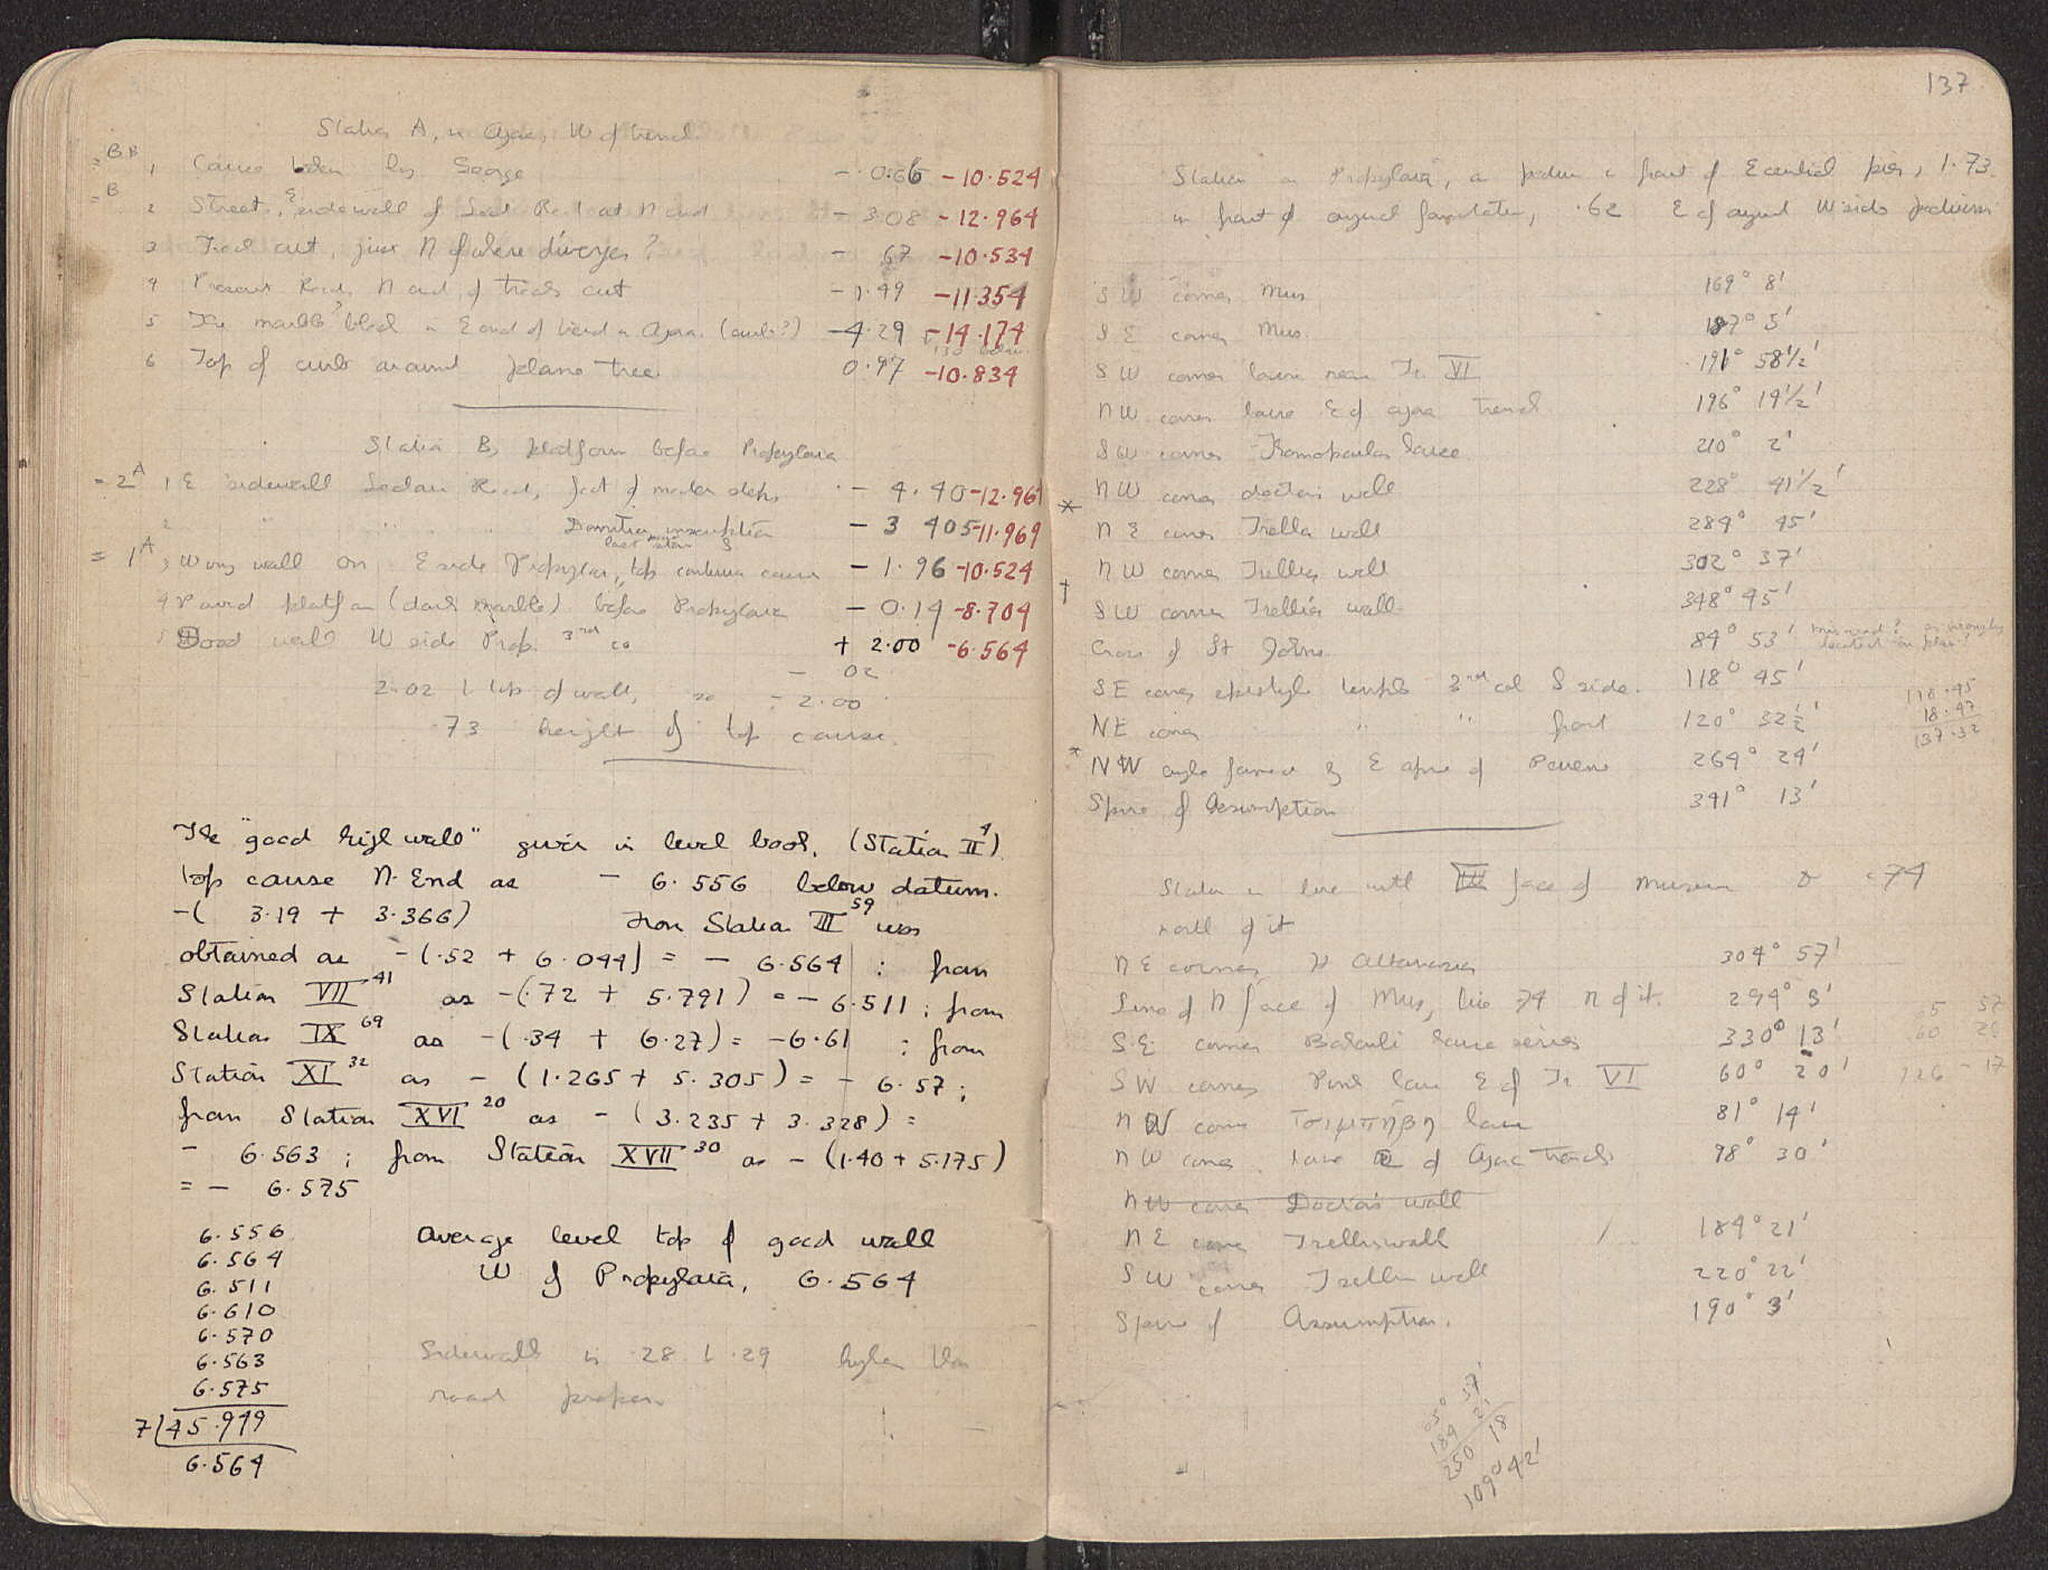 Station A, in Agora, W of trench
= B B 1 Course taken by George - 0.66 -10.524
= B 2 Street, E sidewall of Lech. Road at N end - 3.08 -12.964
3 Track cut, just N of where diverges? - 67 -10.534
4 Present Road, N end of track cut -1.49 -11.354
5 marble? block in E end of trench in Agora (curb?) -4.29 -14.174
6 Top of curb around plane tree 0.97 -10.834
Station B, platform before Propylaea
= 2 A 1 E sidewall Lechaion Road, foot of modern steps - 4.40 -12.964
2 " " " Domitian inscription - 3 405 -11.969
= 1 A 3 Wing wall on E side Propylaea, top continuous course - 1.96 -10.524
last stone S
4 Paved platform (dark marble) before Propylaea - 0.14 -8.704
5 Good wall W side Prop. 3rd co + 2.00 -6.564
- 02
2.02 top of wall, so - 2.00
.73 height of top course
The "good high wall" given in level book, (Station II 4)
top course N. End as - 6.556 below datum.
-( 3.19 + 3.366) From Station III 59 was
obtained as -(.52 + 6.044) = - 6.564 ; from
Station VII 41 as -(.72 + 5.791) = - 6.511 ; from
Station IX 69 as -(.34 + 6.27) = -6.61 ; from
Station XI 32 as - (1.265 + 5.305) = - 6.57 ;
from Station XVI 20 as - (3.235 + 3.328) =
- 6.563 ; from Station XVII 30 as - (1.40 + 5.175)
= - 6.575
6.556
6.564
6.511
6.610
6.570
6.563
6.575
7 45.949
6.564
Average level top of good wall
W of Propylaea, 6.564
Sidewall is .28 .29 higher than
road proper
137
Station on Propylaea, on podium in front of E central pier, 1.73
in front of original foundation, .62 E of original W side podium
SW corner Mus 169° 8'
SE corner Mus. 187° 5'
SW corner house near Tr. VI 191° 58½'
NW corner house E of agora trench 196° 19½'
SW corner house 210° 2'
NW corner doctor's wall 228° 41½'
* NE corner Trellis wall 284° 45'
NW corner Trellis wall 302° 37'
† SW corner Trellis wall 348° 45'
Cross of St Johns 84° 53' misread? or wrongly located on plan?
SE corner epistyle temple 3rd col S side. 118° 45'
NE corner " " front 120° 32½'
118.45
18.47
137.32
* NW angle formed by E apse of 264° 24'
Spire of Assumption 341° 13'
Station in line with face of Museum & .74
north of it
NE corner H Athanasios 304° 57'
Line of N face of Mus, line 74 N of it. 294° 5'
SE corner house series 330° 13'
SW corner house E of Tr VI 60° 20'
65 57
60 20
126 - 17
NW corner Τσιμπηβη house 81° 14'
NW corner house E of Agora trench 98° 30'
NW corner Doctor's wall
NE corner Trellis wall 184° 21'
SW corner Trellis wall 220° 22'
Spire of Assumption. 190° 3'
184 21
250 18
109° 42'